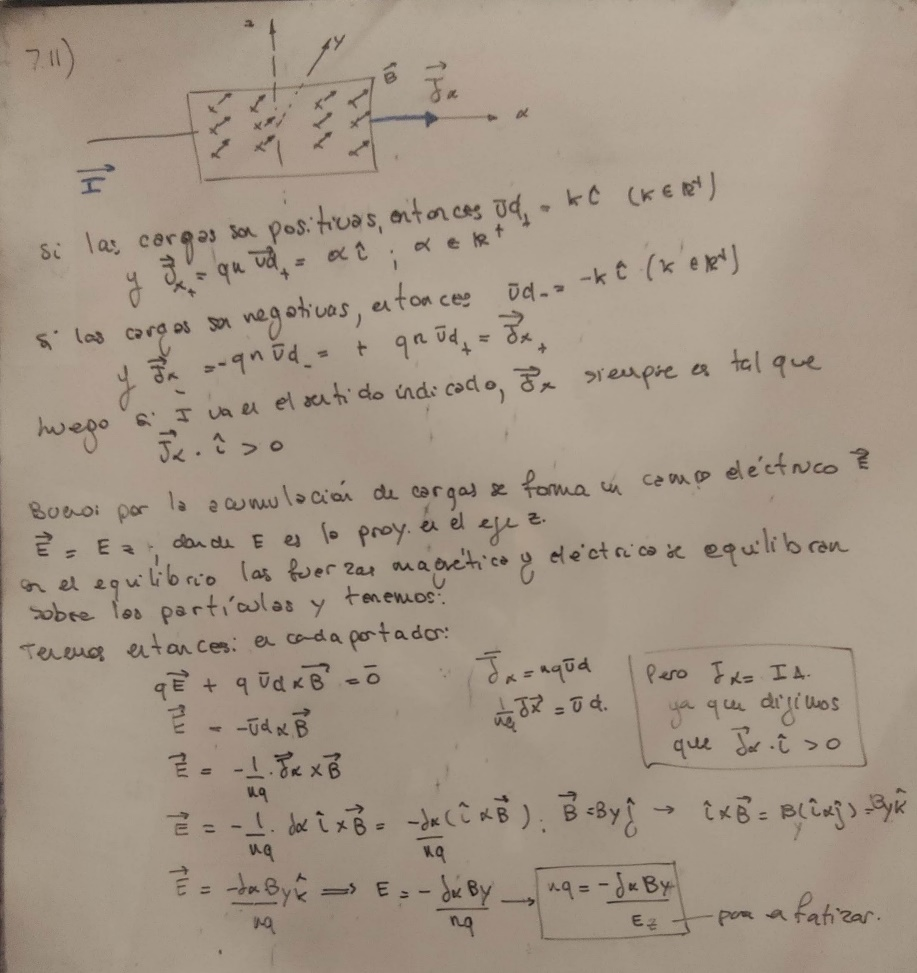 7.11)
z
y
B⃗
J⃗x
x
I⃗
Si las cargas son positivas, entonces v̄d₊ = k î (k ∈ ℝ⁺)
y J⃗x₊ = qn v̄d₊ = α î ; α ∈ ℝ⁺
Si las cargas son negativas, entonces v̄d₋ = -k î (k ∈ ℝ⁺)
y J⃗x₋ = -qn v̄d₋ = + qn v̄d₊ = J⃗x₊
luego si I va en el sentido indicado, J⃗x siempre es tal que
J⃗x · î > 0
Bueno: por la acumulación de cargas se forma un campo eléctrico E⃗
E⃗ = E z ; donde E es la proy. en el eje z.
en el equilibrio las fuerzas magnética y eléctrica se equilibran
sobre las partículas y tenemos:
Tenemos entonces: en cada portador:
qE⃗ + q v̄d × B⃗ = 0̄
J̄x = nq v̄d
Pero Jx = IA.
E⃗ = -v̄d × B⃗
1/nq J⃗x = v̄d.
ya que dijimos
que J⃗x · î > 0
E⃗ = -1/nq · J⃗x × B⃗
E⃗ = -1/nq · Jx î × B⃗ = -Jx/nq (î × B⃗) ; B⃗ = By ĵ → î × B⃗ = By (î × ĵ) = By k̂
E⃗ = -Jx By k̂/nq ⟹ E = -Jx By/nq → nq = -Jx By/Ez para enfatizar.